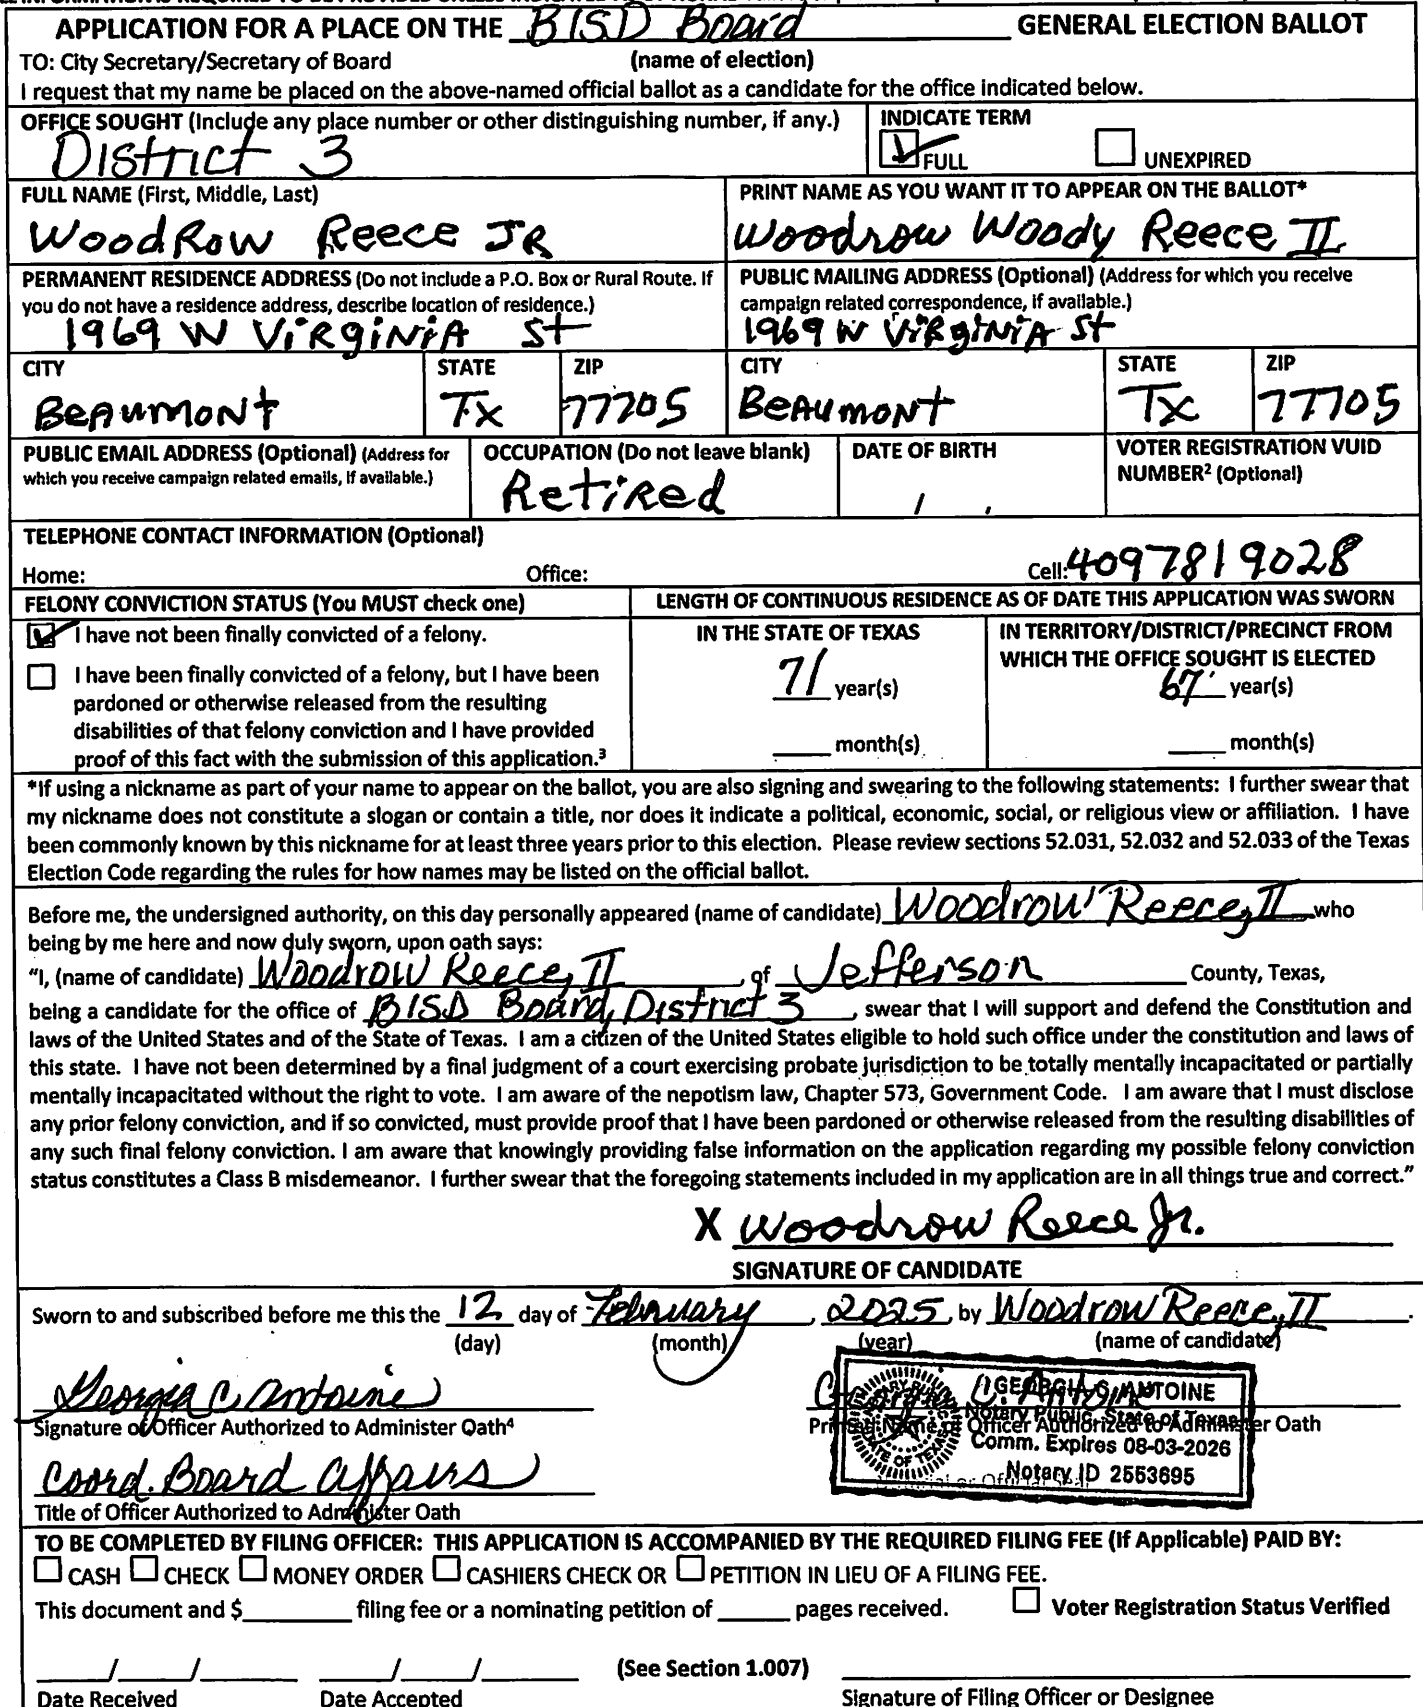 APPLICATION FOR A PLACE ON THE BISD Board GENERAL ELECTION BALLOT
TO: City Secretary/Secretary of Board (name of election)
I request that my name be placed on the above-named official ballot as a candidate for the office indicated below.
OFFICE SOUGHT (Include any place number or other distinguishing number, if any.) INDICATE TERM
District 3 FULL UNEXPIRED
FULL NAME (First, Middle, Last) PRINT NAME AS YOU WANT IT TO APPEAR ON THE BALLOT*
WoodRow Reece JR Woodrow Woody Reece II
PERMANENT RESIDENCE ADDRESS (Do not include a P.O. Box or Rural Route. If PUBLIC MAILING ADDRESS (Optional) (Address for which you receive
you do not have a residence address, describe location of residence.) campaign related correspondence, if available.)
1969 W VIRginiA St 1969 W VIRginiA St
CITY STATE ZIP CITY STATE ZIP
BeAumont Tx 77705 BeAumont Tx 77705
PUBLIC EMAIL ADDRESS (Optional) (Address for OCCUPATION (Do not leave blank) DATE OF BIRTH VOTER REGISTRATION VUID
which you receive campaign related emails, if available.) Retired / NUMBER² (Optional)
TELEPHONE CONTACT INFORMATION (Optional)
Home: Office: Cell: 4097819028
FELONY CONVICTION STATUS (You MUST check one) LENGTH OF CONTINUOUS RESIDENCE AS OF DATE THIS APPLICATION WAS SWORN
I have not been finally convicted of a felony. IN THE STATE OF TEXAS IN TERRITORY/DISTRICT/PRECINCT FROM
WHICH THE OFFICE SOUGHT IS ELECTED
I have been finally convicted of a felony, but I have been 71 year(s) 67 year(s)
pardoned or otherwise released from the resulting
disabilities of that felony conviction and I have provided month(s) month(s)
proof of this fact with the submission of this application.³
*If using a nickname as part of your name to appear on the ballot, you are also signing and swearing to the following statements: I further swear that
my nickname does not constitute a slogan or contain a title, nor does it indicate a political, economic, social, or religious view or affiliation. I have
been commonly known by this nickname for at least three years prior to this election. Please review sections 52.031, 52.032 and 52.033 of the Texas
Election Code regarding the rules for how names may be listed on the official ballot.
Before me, the undersigned authority, on this day personally appeared (name of candidate) Woodrow Reece, II who
being by me here and now duly sworn, upon oath says:
"I, (name of candidate) Woodrow Reece, II, of Jefferson County, Texas,
being a candidate for the office of BISD Board, District 3, swear that I will support and defend the Constitution and
laws of the United States and of the State of Texas. I am a citizen of the United States eligible to hold such office under the constitution and laws of
this state. I have not been determined by a final judgment of a court exercising probate jurisdiction to be totally mentally incapacitated or partially
mentally incapacitated without the right to vote. I am aware of the nepotism law, Chapter 573, Government Code. I am aware that I must disclose
any prior felony conviction, and if so convicted, must provide proof that I have been pardoned or otherwise released from the resulting disabilities of
any such final felony conviction. I am aware that knowingly providing false information on the application regarding my possible felony conviction
status constitutes a Class B misdemeanor. I further swear that the foregoing statements included in my application are in all things true and correct."
X Woodrow Reece Jr.
SIGNATURE OF CANDIDATE
Sworn to and subscribed before me this the 12 day of February, 2025, by Woodrow Reece, II.
(day) (month) (year) (name of candidate)
Georgia C Antoine GEORGIA C. ANTOINE
Signature of Officer Authorized to Administer Oath⁴ Printed Name of Officer Authorized to Administer Oath
Notary Public, State of Texas
Comm. Expires 08-03-2026
Coord. Board Affairs Notary ID 2553695
NOTARY PUBLIC STATE OF TEXAS
Title of Officer Authorized to Administer Oath
TO BE COMPLETED BY FILING OFFICER: THIS APPLICATION IS ACCOMPANIED BY THE REQUIRED FILING FEE (If Applicable) PAID BY:
CASH CHECK MONEY ORDER CASHIERS CHECK OR PETITION IN LIEU OF A FILING FEE.
This document and $ filing fee or a nominating petition of pages received. Voter Registration Status Verified
/ / / / (See Section 1.007)
Date Received Date Accepted Signature of Filing Officer or Designee